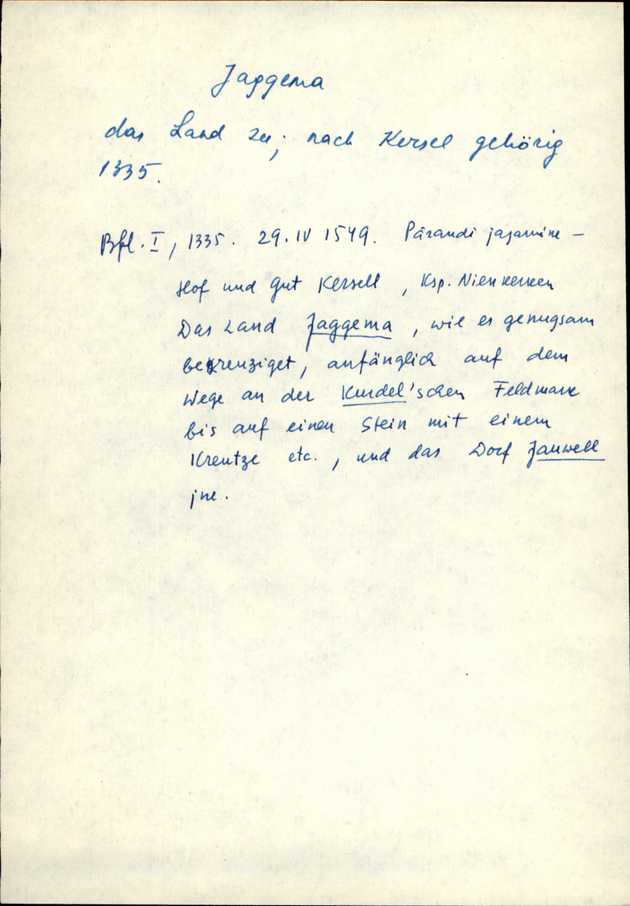 Jaggema
das Land zu; nach Kersel gehörig
1335.
Bfl. I, 1335. 29.IV 1549. Pärandi jagamine –
Hof und Gut Kersell, Ksp. Nienkerken
Das Land Jaggema, wie es genugsam
bekreuziget, anfänglich auf dem
Wege an der Kurdel'schen Feldmark
bis auf einen Stein mit einem
Kreutze etc., und das Dorf Jauwell
jne.